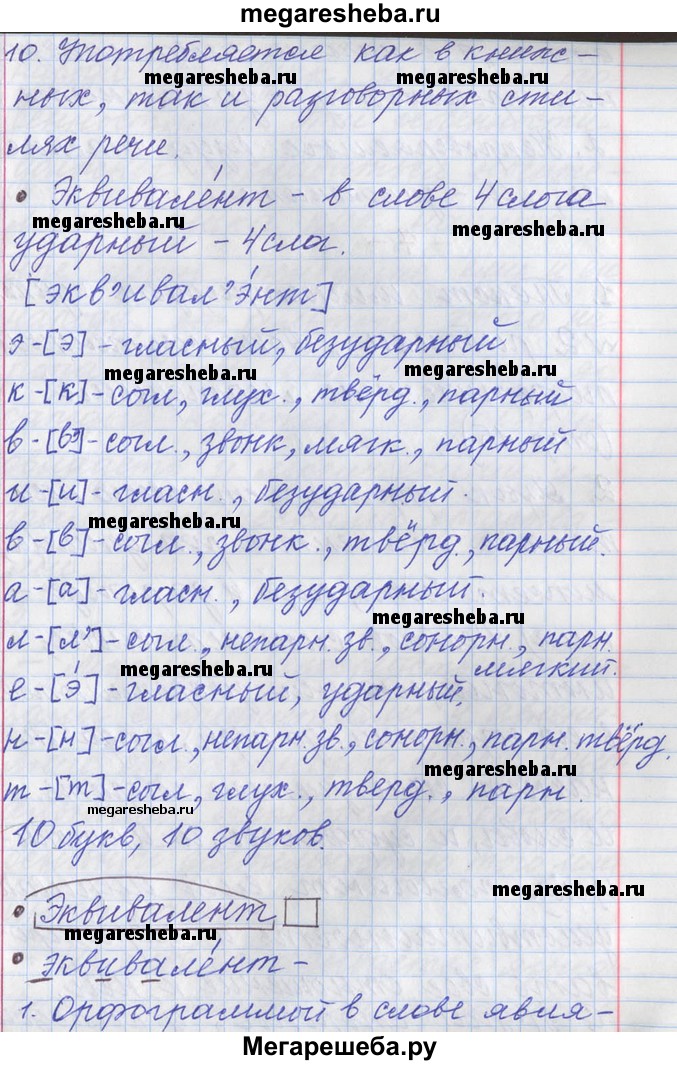 megaresheba.ru
10. Употребляется как в книж-
megaresheba.ru megaresheba.ru
ных, так и разговорных сти-
лях речи.
• Эквивале́нт - в слове 4 слога
megaresheba.ru megaresheba.ru
ударный - 4 слог.
[экв’ивал’э́нт]
э-[э]-гласный, безударный
megaresheba.ru megaresheba.ru
к-[к]-согл., глух., твёрд., парный
в-[в’]-согл., звонк., мягк., парный
и-[и]-гласн., безударный.
megaresheba.ru
в-[в]-согл., звонк., твёрд., парный.
а-[а]-гласн., безударный.
megaresheba.ru
л-[л’]-согл., непарн. зв., сонорн., парн.
мягкий.
megaresheba.ru
е-[э́]-гласный, ударный,
н-[н]-согл., непарн. зв., сонорн., парн. твёрд.
megaresheba.ru
т-[т]-согл., глух., тверд., парн.
megaresheba.ru
10 букв, 10 звуков.
megaresheba.ru
• Эквивалент
megaresheba.ru
• эквивале́нт -
1. Орфограммой в слове явля-
Мегарешеба.ру